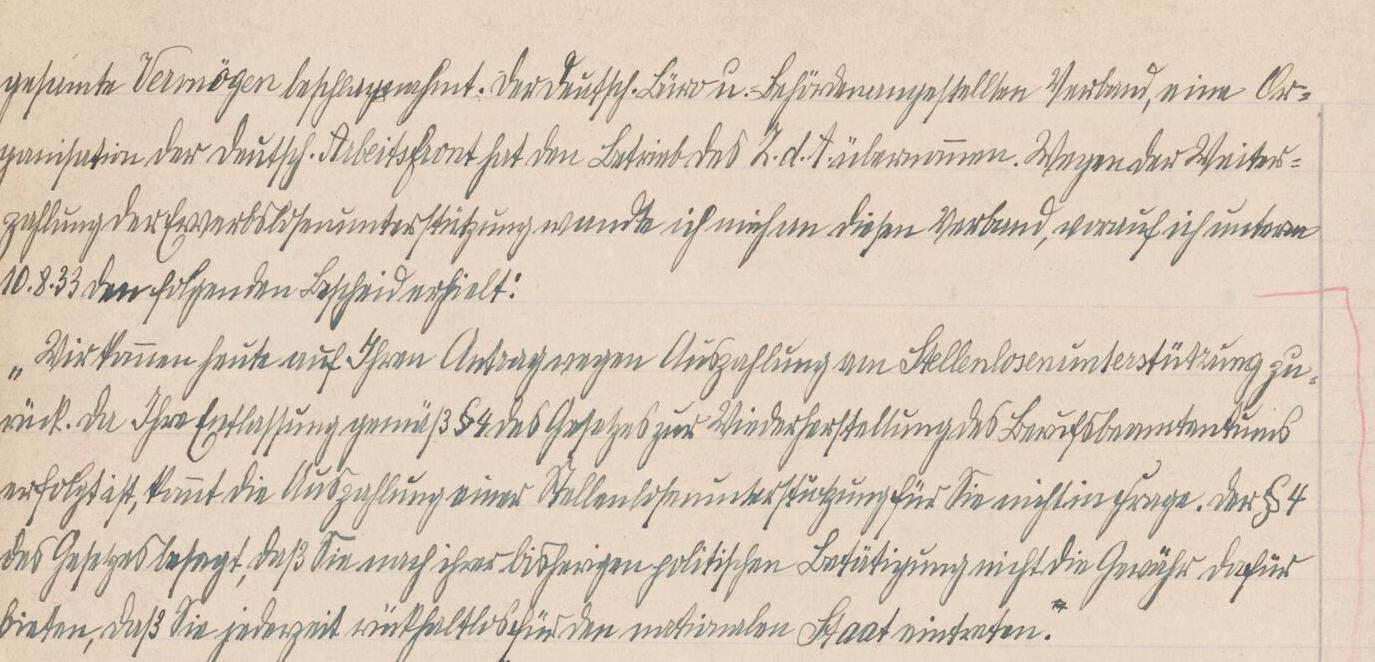 gesamte Vermögen beschlagnahmt. Der Deutsch. Büro u. Behördenangestellten Verband, eine Or=
ganisation der Deutsch. Arbeitsfront hat den Betrieb des Z.d.A. übernom̅en. Wegen der Weiter=
zahlung der Erwerbslosenunterstützung wandte ich mich an diesen Verband, worauf ich unterm
10.8.33 den folgenden Bescheid erhielt:
„Wir kom̅en heute auf Ihren Antrag wegen Auszahlung von Stellenlosenunterstützung zu=
rück. Da Ihre Entlassung gemäß § 4 des Gesetzes zur Wiederherstellung des Berufsbeamtentums
erfolgt ist, kom̅t die Auszahlung einer Stellenlosenunterstützung für Sie nicht in Frage. Der § 4
des Gesetzes besagt, daß Sie nach ihrer bisherigen politischen Betätigung nicht die Gewähr dafür
bieten, daß Sie jederzeit rückhaltlos für den nationalen Staat eintreten."